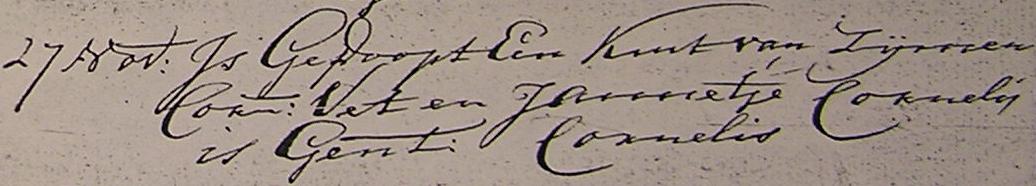 27 Nov: Is Gedoopt Een Kint van Zijmen
Corn: Vet en Jannetje Cornelis
is Gent: Cornelis